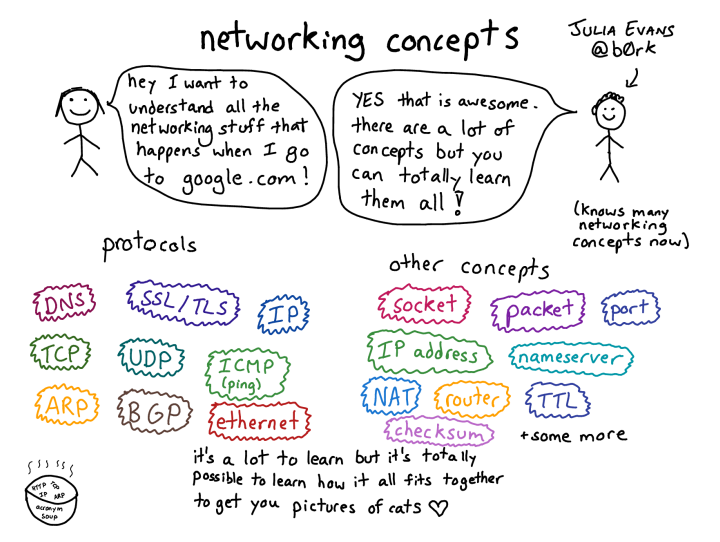 networking concepts
JULIA EVANS
@b0rk
hey I want to
understand all the
networking stuff that
happens when I go
to google.com!
YES that is awesome.
there are a lot of
concepts but you
can totally learn
them all!
(knows many
networking
concepts now)
protocols
DNS
SSL/TLS
IP
TCP
UDP
ICMP
(ping)
ARP
BGP
ethernet
other concepts
socket
packet
port
IP address
nameserver
NAT
router
TTL
checksum
+some more
it's a lot to learn but it's totally
possible to learn how it all fits together
to get you pictures of cats ♡
HTTP
IP ARP
acronym
soup